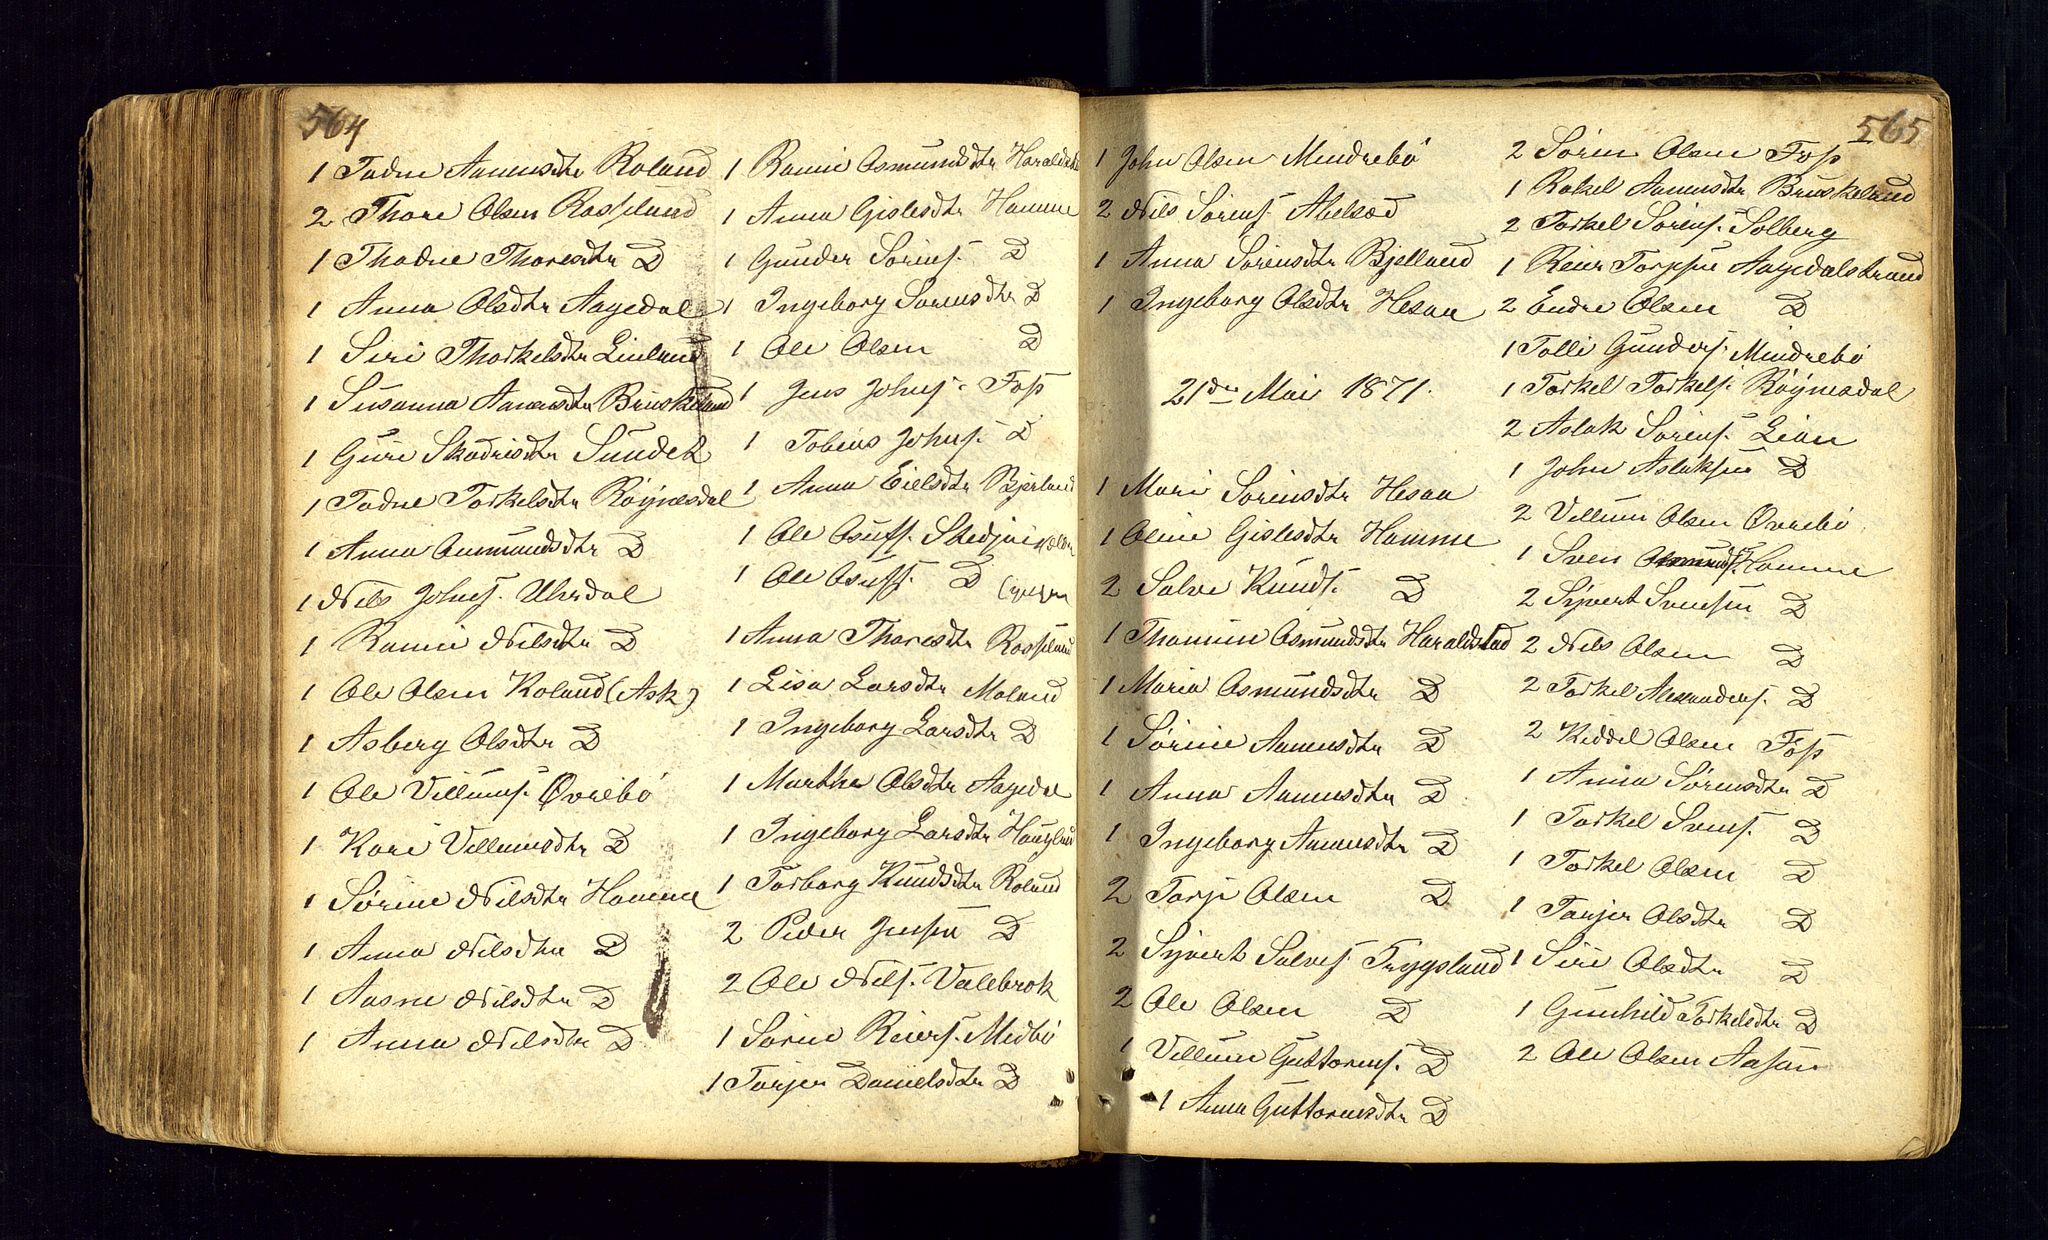 564
1 Tadne Aanensdtr Roland
2 Thore Olsen Rosseland
1 Thadne Thoresdtr D
1 Anna Olsdtr Aagedal
1 Siri Thorkelsdtr Lieland
1 Susanna Aanensdtr Bruskeland
1 Guri Skadrisdtr Sundet
1 Tadne Torkelsdtr Røynesdal
1 Anna Aamundsdtr D
1 Nils Johnss. Uhrdal
1 Ranni Nilsdtr D
1 Ole Olsen Roland (Ask)
1 Asberg Olsdtr D
1 Ole Villumss. Øvrebø
1 Kari Villumsdtr D
1 Sørine Nilsdtr Homme
1 Anna Nilsdtr D
1 Aasne Nilsdtr D
1 Anna Nilsdtr D
1 Ranni Osmundsdtr Haraldstad
1 Anna Gislesdtr Homme
1 Gunder Sørens. D
1 Ingeborg Sørensdtr D
1 Ole Olsen D
1 Jens Johns. Foss
1 Tobias Johns. D
1 Anna Eielsdtr Bjerland
1 Ole Asulfs.
1 Ole Asulfs. D
1 Anna Thoresdtr Rosseland
1 Lisa Larsdtr Moland
1 Ingeborg Larsdtr D
1 Marthe Olsdtr Aagedal
1 Ingeborg Larsdtr Haugland
1 Torborg Knudsdtr Roland
2 Peder Jensen D
2 Ole Nils. Valebrok
1 Sørine Reiers. Medbø
1 Tarjer Danielsdtr D
565
1 John Olsen Mindrebø
2 Nils Sørens. Abelsæd
1 Anna Sørensdtr Bjelland
1 Ingeborg Olsdtr Hesaa
21de Mai 1871.
1 Mari Sørensdtr Hesaa
1 Oline Gislesdtr Homme
2 Salve Knuds. D
1 Thomine Osmundsdtr Haraldstad
1 Maria Osmundsdtr D
1 Sørine Aanensdtr D
1 Anna Aanensdtr D
1 Ingeborg Aanensdtr D
2 Tarje Olsen D
2 Syvert Salves. Trygsland
2 Ole Olsen D
1 Villum Guttorms. D
1 Anna Guttormsdtr D
2 Søren Olsen Foss
1 Rakel Aanensdtr Bruskeland
2 Torkel Sørens. Solberg
1 Reier Torjsen Aagedalstrand
2 Endre Olsen D
1 Tolli Gunders. Mindrebø
1 Torkel Torkels. Røynesdal
2 Aslak Sørens. Lian
1 John Aslaksen D
2 Villum Olsen Øvrebø
1 Sven Osmunds. Homme
2 Syvert Svensen D
2 Nils Olsen D
2 Torkel Alexanders. D
2 Kiddel Olsen Foss
1 Anna Sørensdtr D
1 Torkel Svens. D
1 Torkel Olsen D
1 Tarjer Olsdtr D
1 Siri Olsdtr D
1 Gunhild Torkelsdtr D
2 Ole Olsen Aasan